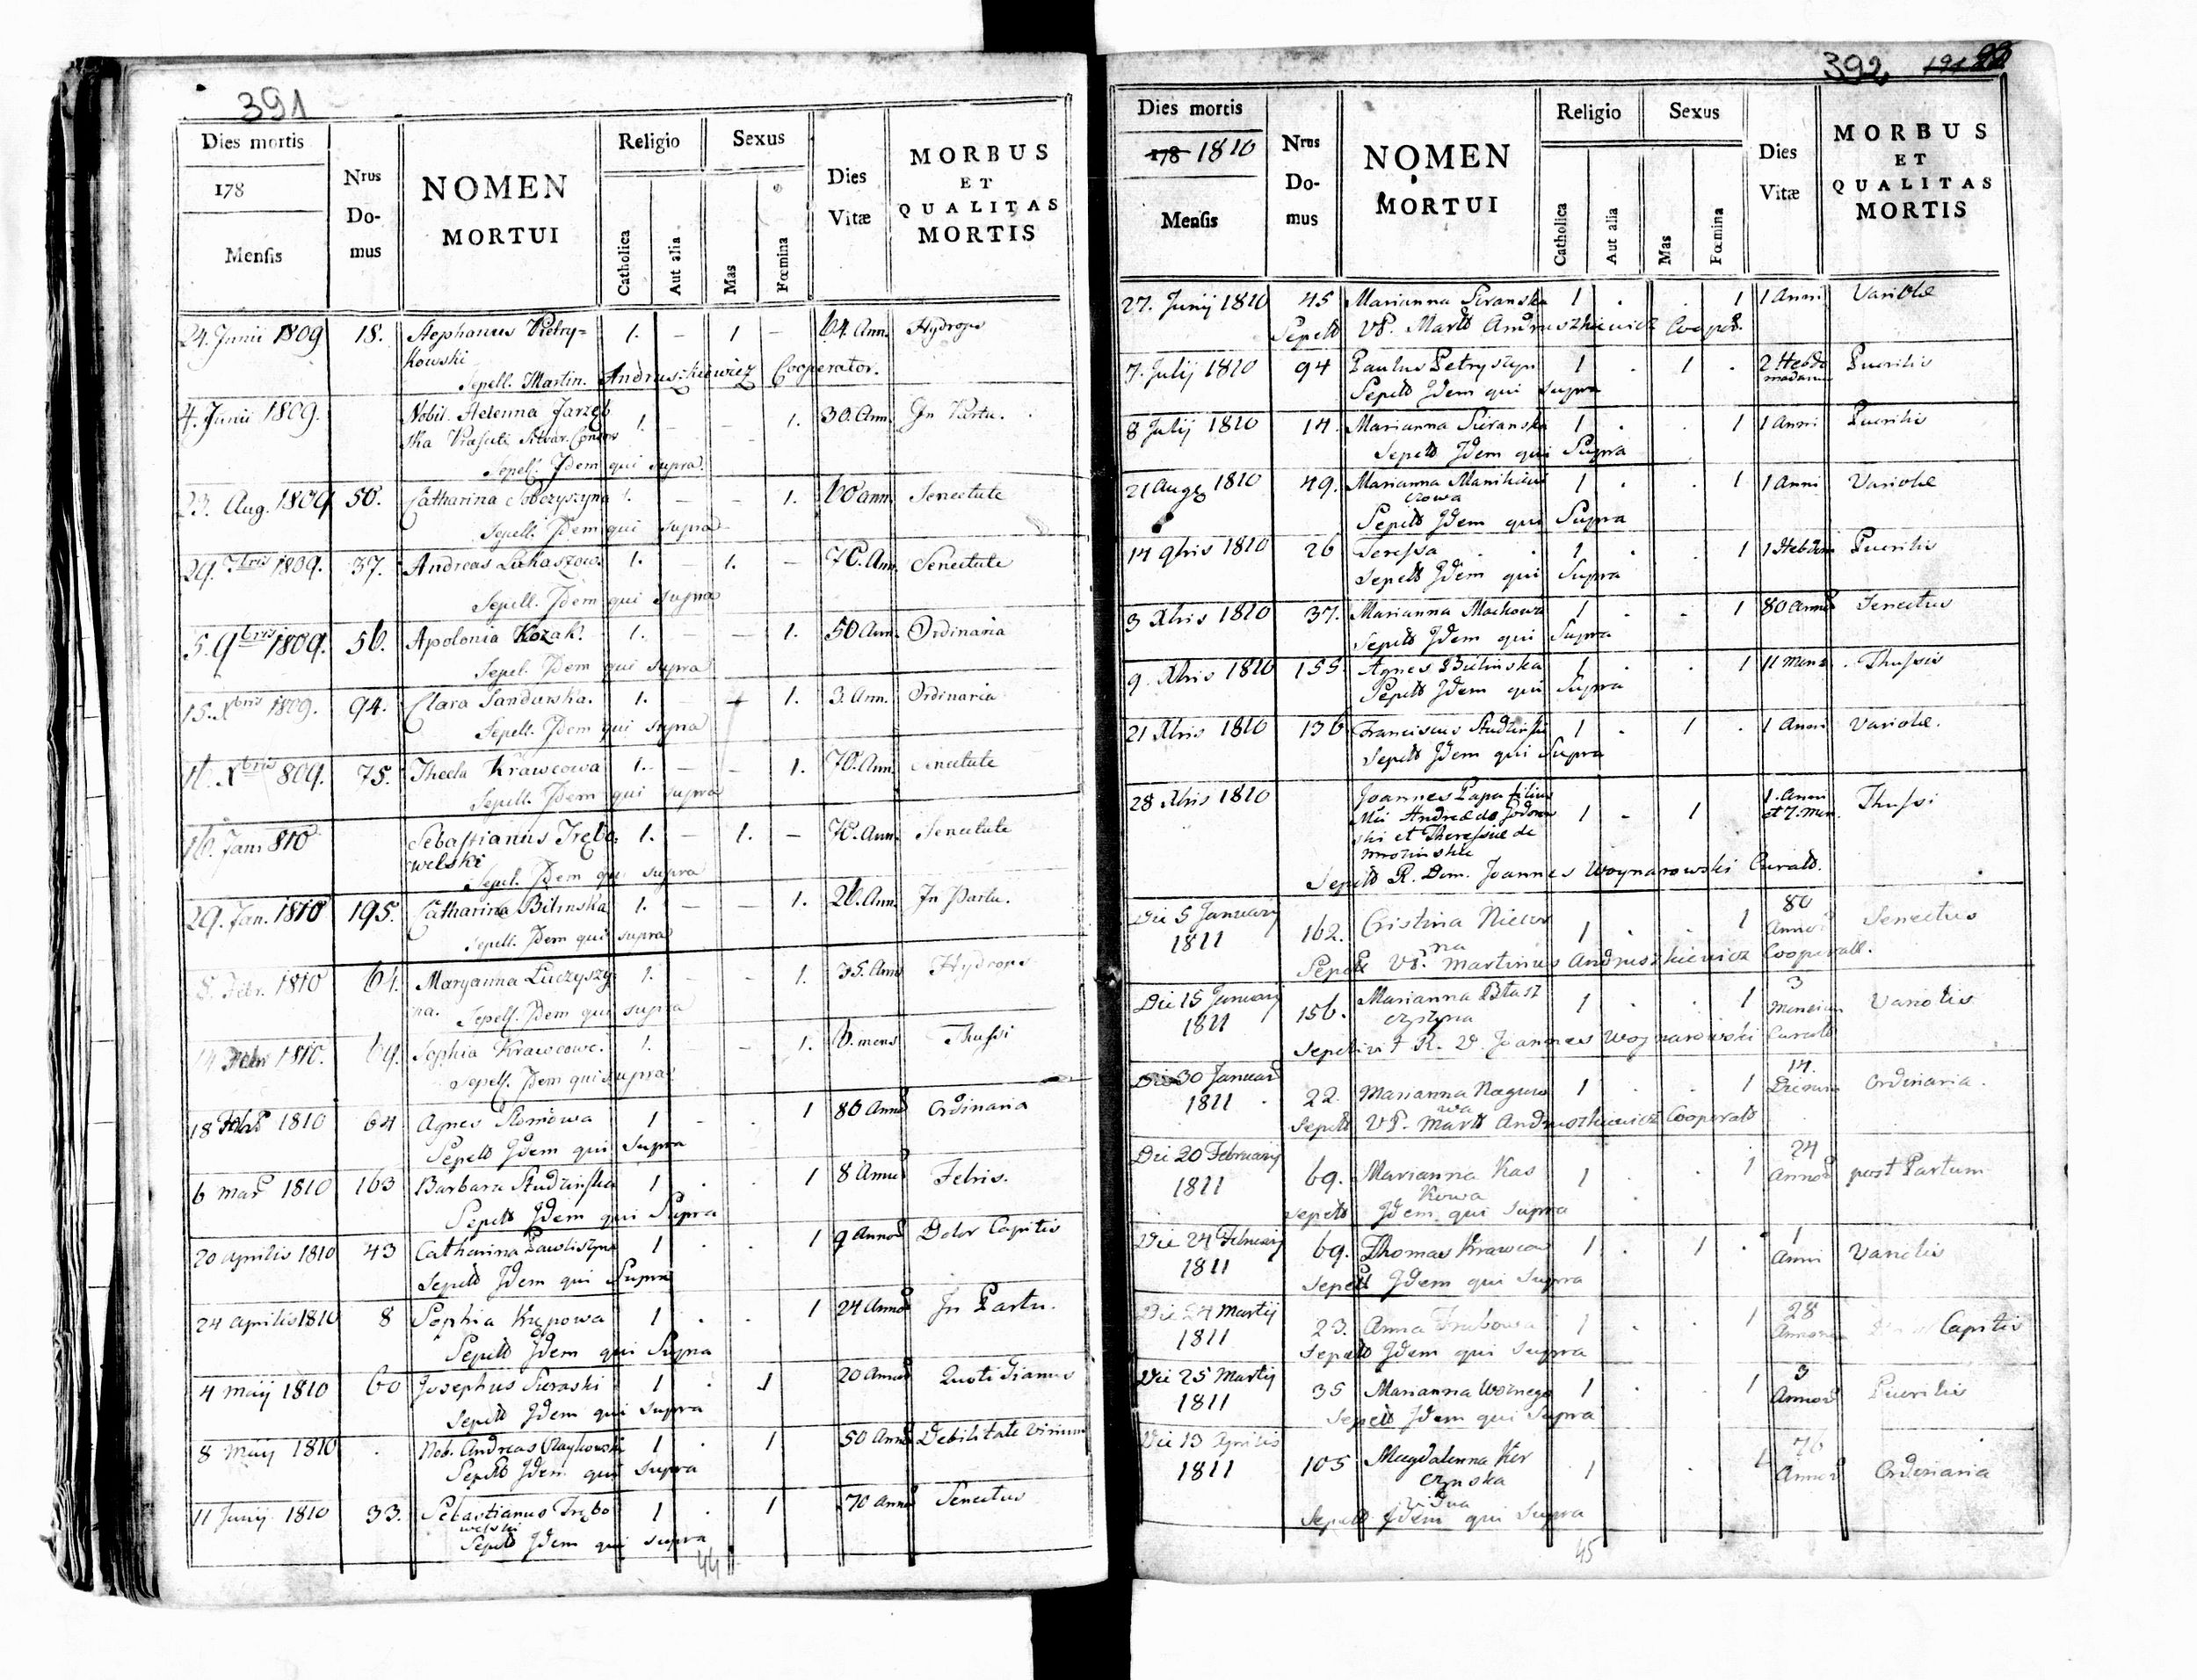 391
Dies mortis
178
Mensis
Nrus Do-mus
NOMEN MORTUI
Religio
Catholica
Aut alia
Sexus
Mas
Fœmina
Dies Vitæ
MORBUS ET QUALITAS MORTIS
24. Junii 1809 18. Stephanus Pietry= 1. – 1 – 64. Ann. Hydrops
kowski
Sepell. Martin. Andruszkiewicz Cooperator.
4. Junii 1809. Nobil. Helenna Jarzęb 1. – – 1. 30. Ann. In Partu.
ska
Sepell. Idem qui supra.
23. Aug. 1809 50. Catharina Sobczyszyna 1. – – 1. 60 ann. Senectute
Sepell. Idem qui supra
29. 7bris 1809. 37. Andreas Lukaszow. 1. – 1. – 70. Ann. Senectute
Sepell. Idem qui supra
5. 9bris 1809. 56. Apolonia Kozak. 1. – – 1. 50 Ann. Ordinaria
Sepel. Idem qui supra
15. Xbris 1809. 94. Clara Sandurska. 1. 1. 3. Ann. Ordinaria
Sepell. Idem qui supra
Xbris 809. 75. Thecla Krawcowa 1. – – 1. 70. Ann. Senectute
Sepell. Idem qui supra
16. Jan. 810 Sebastianus Trębo 1. – 1. – Ann. Senectute
welski
Sepel. Idem qui supra
29. Jan. 1810 195. Catharina Bilinska 1. – – 1. Ann. In Partu.
Sepell. Idem qui supra
8. Febr. 1810 61. Maryanna Luczyszy 1. – – 1. 35. Ann. Hydrops
na. Sepell. Idem qui supra
14 Febr 1810. 69. Sophia Krawcowc. 1. – – 1. 6. mens Thussi
Sepell. Idem qui supra
18 Feb 1810 64 Agnes Slomowa 1 . . 1 80 Anno Ordinaria
Sepelt Idem qui Supra
6 Mar 1810 163 Barbara Studzinska 1 . . 1 8 Anno Febris.
Sepelt Idem qui Supra
20 Aprilis 1810 43 Catharina Pawliszyna 1 . . 1 9 Anno Dolor Capitis
Sepelt Idem qui Supra
24 Aprilis 1810 8 Sophia Kępowa 1 . . 1 24 Anno In Partu.
Sepelt Idem qui Supra
4 Maij 1810 60 Josephus Sieraski 1 . 1 20 Anno Quotidianus
Sepelt Idem qui Supra
8 Maij 1810 . Nob. Andreas 1 . 1 50 Anno Debilitate Virium
Sepelt Idem qui Supra
11 Junij 1810 33. Sebastianus Trębo 1 . 1 70 Anno Senectus
welski
Sepelt Idem qui Supra
44
392
Dies mortis
178 1810
Mensis
Nrus Do-mus
NOMEN MORTUI
Religio
Catholica
Aut alia
Sexus
Mas
Fœmina
Dies Vitæ
MORBUS ET QUALITAS MORTIS
27. Junij 1810 45 Marianna Sieranska 1 . . 1 1 Anni Variolæ
Sepelt VP. Mart Andruszkiewicz Cooper.
7. Julij 1810 94 Paulus Petryszyn 1 . 1 . 2 Hebdo Puerilis
madarum
Sepelt Idem qui Supra
8 Julij 1810 14 Marianna Sieranska 1 . . 1 1 Anni Puerilis
Sepelt Idem qui Supra
21 Aug 1810 49. Marianna Manikiew 1 . . 1 1 Anni Variolæ
czowa
Sepelt Idem qui Supra
14 9bris 1810 26 Teressa . . 1 . . 1 1 Hebdom Puerilis
Sepelt Idem qui Supra
3 Xbris 1810 37. Marianna Machowa 1 . . 1 80 Anno Senectus
Sepelt Idem qui Supra
9. Xbris 1810 155. Agnes Bielinska 1 . . 1 11 Mens. Thussis
Sepelt Idem qui Supra
21 Xbris 1810 136 Franciscus Studzinski 1 . 1 . 1 Anni Variolæ.
Sepelt Idem qui Supra
28 Xbris 1810 Joannes Papa filius 1 . 1 1. Anni Thussi
et 7. Men.
ski et Theressiæ de
Sepelt R. Dom. Joannes Woynarowski Curat.
Die 5 Januarij 1811 162. Cristina 1 . . 1 80 Anno Senectus
na
Sepelt VP. Martinus Andruszkiewicz Cooperat.
Die 15 Januarij 1811 156. Marianna Blasz 1 . . 1 3 Mensium Variolis
czyszyna
Sepelivit R. D. Joannes Woynarowski Curat
Die 30 Januar 1811 22. Marianna Naguro 1 . . 1 14. Dierum Ordinaria.
wa
Sepelt VP. Mart Andruszkiewicz Cooperat
Die 20 Februarij 1811 69. Marianna Kas 1 . . 1 24 Anno post Partum
kowa
Sepelt Idem qui Supra
Die 24 Februarij 1811 69. Thomas Krawcow 1 . 1 . 1 Anni Variolis
Sepelt Idem qui Supra
Die 24 Martij 1811 23. Anna Grabowa 1 . . 1 28 Capitis
Sepelt Idem qui Supra
Die 25 Martij 1811 35 Marianna Woznego 1 . . 1 3 Anno Puerilis
Sepelt Idem qui Supra
Die 13 Aprilis 1811 105 Magdalenna Ker 1 . 1 76 Anno Ordinaria
czynska
vidua
Sepelt Idem qui Supra
45